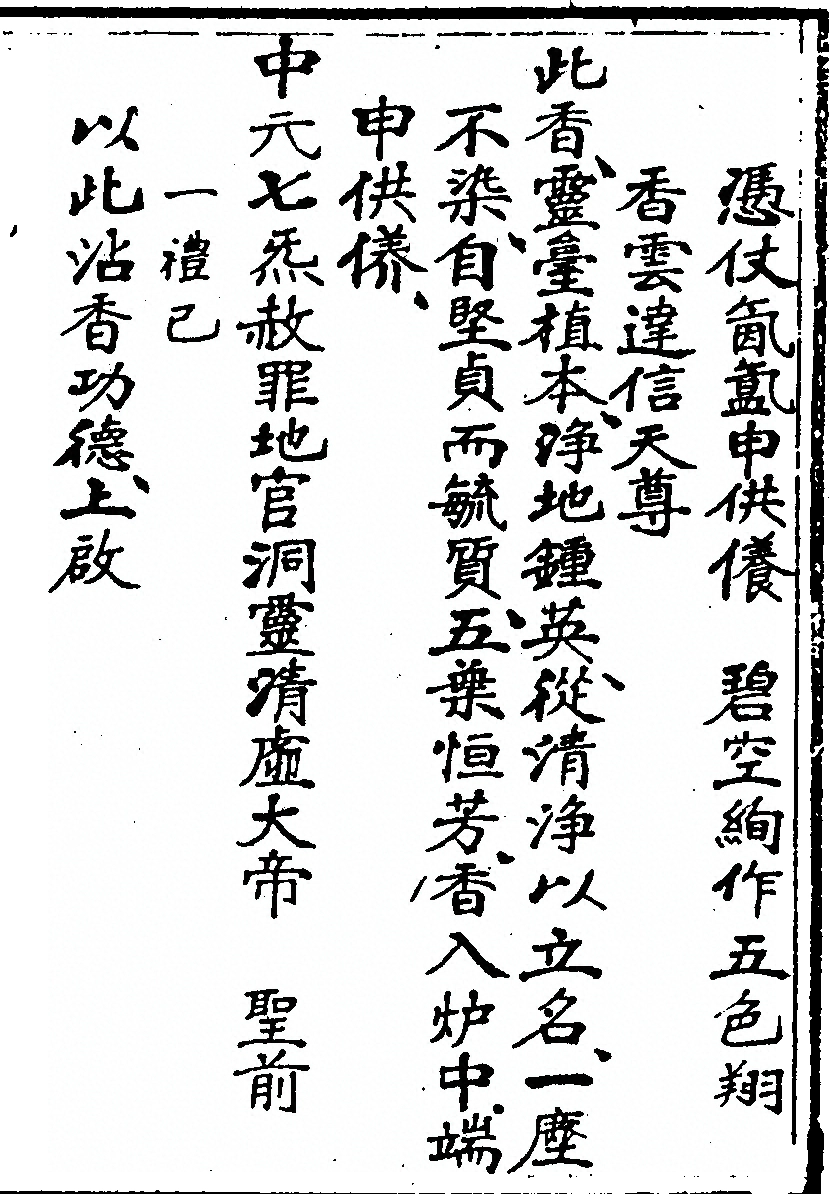 憑仗氤氳申供儀　碧空絢作五色翔
香雲達信天尊
此香、靈臺植本、淨地鍾英、從清淨以立名、一塵
不染、自堅貞而毓質、五葉恒芳、香入炉中、端
申供儀、
中元七炁赦罪地官洞靈清虛大帝　聖前
一禮已
以此沾香功德、上啟